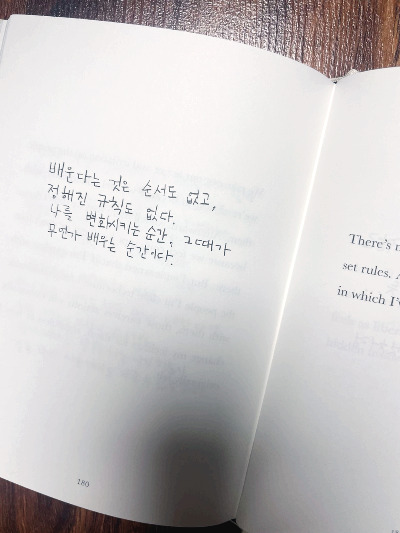 배운다는 것은 순서도 없고,
정해진 규칙도 없다.
나를 변화시키는 순간, 그때가
무언가 배우는 순간이다.
180
There's n
set rules. A
in which I'v